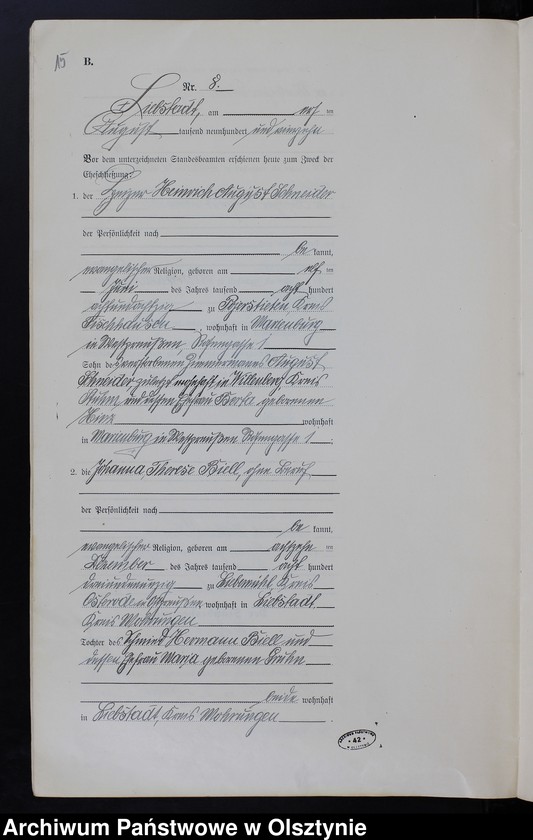 15
B.
Nr. 8.
Liebstadt, am elf ten
August tausend neunhundert und vierzehn
Vor dem unterzeichneten Standesbeamten erschienen heute zum Zweck der
Eheschließung:
1. der Heinrich August Schneider
der Persönlichkeit nach
be kannt,
evangelischer Religion, geboren am elf ten
Juni des Jahres tausend acht hundert
achtundachtzig zu Kreis
Fischhausen, wohnhaft in Marienburg
in Westpreußen, 1
Sohn des verstorbenen Zimmermanns August
Schneider, zuletzt wohnhaft in Willenberg, Kreis
Stuhm und dessen Ehefrau Berta geborenen
Hinz wohnhaft
in Marienburg in Westpreußen 1;
2. die Johanna, Therese Biell, ohne Beruf
der Persönlichkeit nach
be kannt,
evangelischer Religion, geboren am achtzehn ten
Dezember des Jahres tausend acht hundert
dreiundneunzig zu Liebemühl, Kreis
Osterode in Ostpreußen, wohnhaft in Liebstadt
Kreis Mohrungen
Tochter des Schmied Hermann Biell und
dessen Ehefrau Maria geborenen
beide wohnhaft
in Liebstadt, Kreis Mohrungen
42
Archiwum Państwowe w Olsztynie